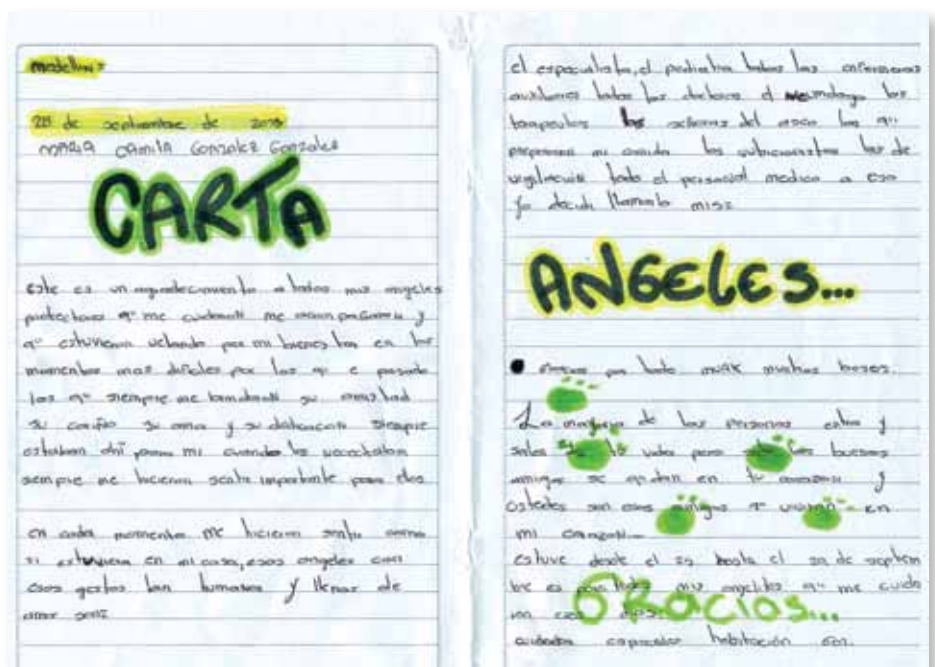 medellin
28 de septiembre de
MARIA CAMILA GONZALEZ GONZALEZ
CARTA
este es un agradecimiento a todos mis angeles
protectores q" me cuidaron me y
q" estuvieron velando por mi bienestar en los
momentos mas dificiles por los q" e pasado
los q" siempre me brindaron su amistad
su cariño su amor y su dedicacion siempre
estaban ahi para mi cuando los necesitaba
siempre me hicieron sentir importante para ellos
en cada momento me hicieron sentir como
si estuviera en mi casa, esos angeles con
esos gestos tan humanos y llenos de
amor
el especialista, el pediatra todas las enfermeras
auxiliares todos los doctores el los
terapeutas las señoras del aseo las q"
preparan mi comida los los de
vigilancia todo el personal medico a eso
yo decidi llamarlo mis
ANGELES...
gracias por todo muak muchos besos.
La mayoria de las personas entra y
sales de tu vida pero solo los buenos
amigos se q"dan en tu corazon y
ustedes son esos amigos q" en
mi corazon...
estuve desde el hasta el de septiem
bre es para todos mis angelitos q" me cuida
ron esos dias
GRACIAS...
cuidados especiales habitación